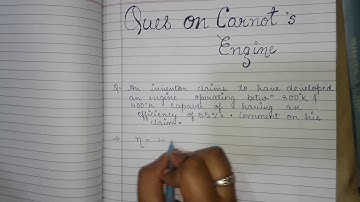 Ques on Carnot's
Engine
Q- An inventor claims to have developed
an engine operating betwn 800°K &
400°K capable of having an
efficiency of 55%. Comment on his
claim.
⇒ η = 1-